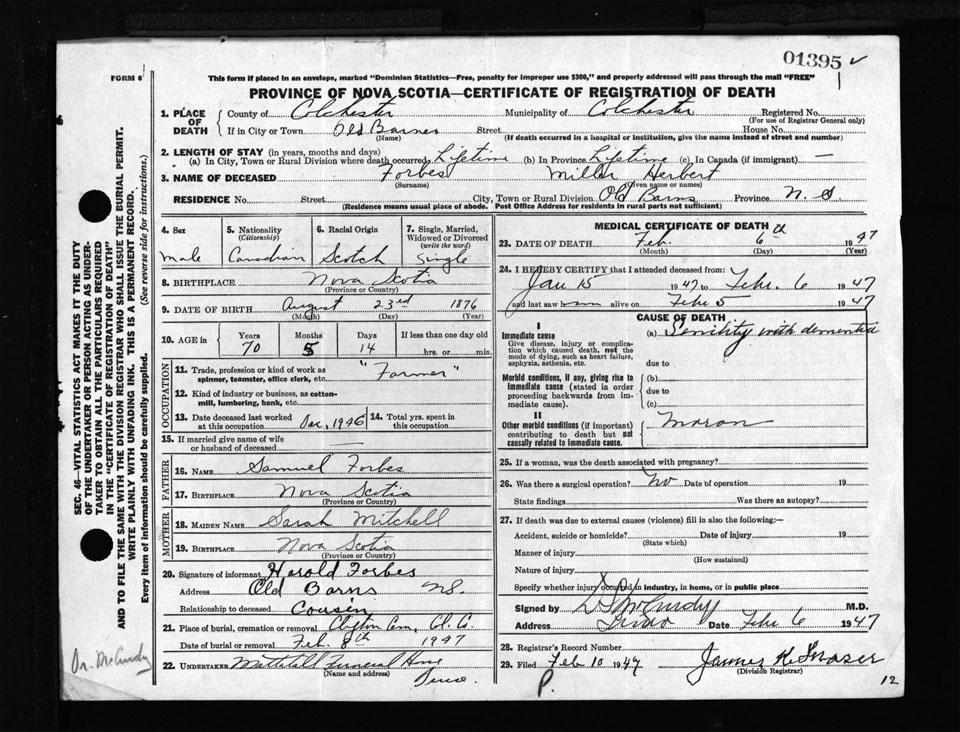 01395 ✓
FORM 6
This form if placed in an envelope, marked "Dominion Statistics—Free, penalty for improper use $300," and properly addressed will pass through the mail "FREE"
PROVINCE OF NOVA SCOTIA—CERTIFICATE OF REGISTRATION OF DEATH
1. PLACE OF DEATH
County of Colchester Municipality of Colchester Registered No.
(For use of Registrar General only)
If in City or Town Old Barns Street House No.
(Name) (If death occurred in a hospital or institution, give the name instead of street and number)
2. LENGTH OF STAY (in years, months and days)
(a) In City, Town or Rural Division where death occurred Lifetime (b) In Province Lifetime (c) In Canada (if immigrant) —
3. NAME OF DECEASED Forbes Miller Herbert
(Surname) (Given name or names)
RESIDENCE No. Street City, Town or Rural Division Old Barns Province N.S
(Residence means usual place of abode. Post Office Address for residents in rural parts not sufficient)
4. Sex
male
5. Nationality
(Citizenship)
Canadian
6. Racial Origin
Scotch
7. Single, Married, Widowed or Divorced
(write the word)
Single
8. BIRTHPLACE Nova Scotia
(Province or Country)
9. DATE OF BIRTH August 23rd 1876
(Month) (Day) (Year)
10. AGE in
Years Months Days If less than one day old
70 5 14 hrs. or min.
OCCUPATION
11. Trade, profession or kind of work as spinner, teamster, office clerk, etc. "Farmer"
12. Kind of industry or business, as cotton-mill, lumbering, bank, etc.
13. Date deceased last worked at this occupation Dec, 1946
14. Total yrs. spent in this occupation
15. If married give name of wife or husband of deceased —
FATHER
16. NAME Samuel Forbes
17. BIRTHPLACE Nova Scotia
(Province or Country)
MOTHER
18. MAIDEN NAME Sarah Mitchell
19. BIRTHPLACE Nova Scotia
(Province or Country)
20. Signature of informant Harold Forbes
Address Old Barns NS.
Relationship to deceased Cousin
21. Place of burial, cremation or removal Clifton Cem, Col. Co.
Date of burial or removal Feb. 8th 1947
22. UNDERTAKER Mattatall Funeral Home
(Name and address)
Truro.
MEDICAL CERTIFICATE OF DEATH
23. DATE OF DEATH Feb. 6th 1947
(Month) (Day) (Year)
24. I HEREBY CERTIFY that I attended deceased from:
Jan 15 1947 to Feb. 6 1947
and last saw him alive on Feb. 5 1947
CAUSE OF DEATH
I
Immediate cause
Give disease, injury or complication which caused death, not the mode of dying, such as heart failure, asphyxia, asthenia, etc.
(a) Senility with dementia
due to
Morbid conditions, if any, giving rise to immediate cause (stated in order proceeding backwards from immediate cause).
(b)
due to
(c)
II
Other morbid conditions (if important) contributing to death but not causally related to immediate cause.
Moron
25. If a woman, was the death associated with pregnancy?
26. Was there a surgical operation? No Date of operation 19
State findings Was there an autopsy?
27. If death was due to external causes (violence) fill in also the following:—
Accident, suicide or homicide? Date of injury 19
(State which)
Manner of injury
(How sustained)
Nature of injury
Specify whether injury occurred in industry, in home, or in public place
Signed by D S McCurdy M.D.
Address Truro Date Feb. 6 1947
28. Registrar's Record Number
29. Filed Feb 10 1947 James K. Fraser
(Division Registrar)
P.
12
SEC. 46—VITAL STATISTICS ACT MAKES IT THE DUTY
OF THE UNDERTAKER OR PERSON ACTING AS UNDER-
TAKER TO OBTAIN ALL THE PARTICULARS REQUIRED
IN THE "CERTIFICATE OF REGISTRATION OF DEATH"
AND TO FILE THE SAME WITH THE DIVISION REGISTRAR WHO SHALL ISSUE THE BURIAL PERMIT.
WRITE PLAINLY WITH UNFADING INK. THIS IS A PERMANENT RECORD.
Every item of information should be carefully supplied. (See reverse side for instructions.)
Dr. McCurdy